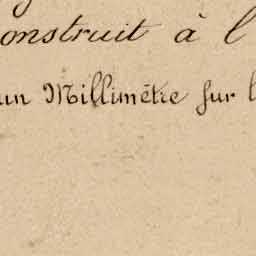 onstruit à l
un Millimêtre sur l